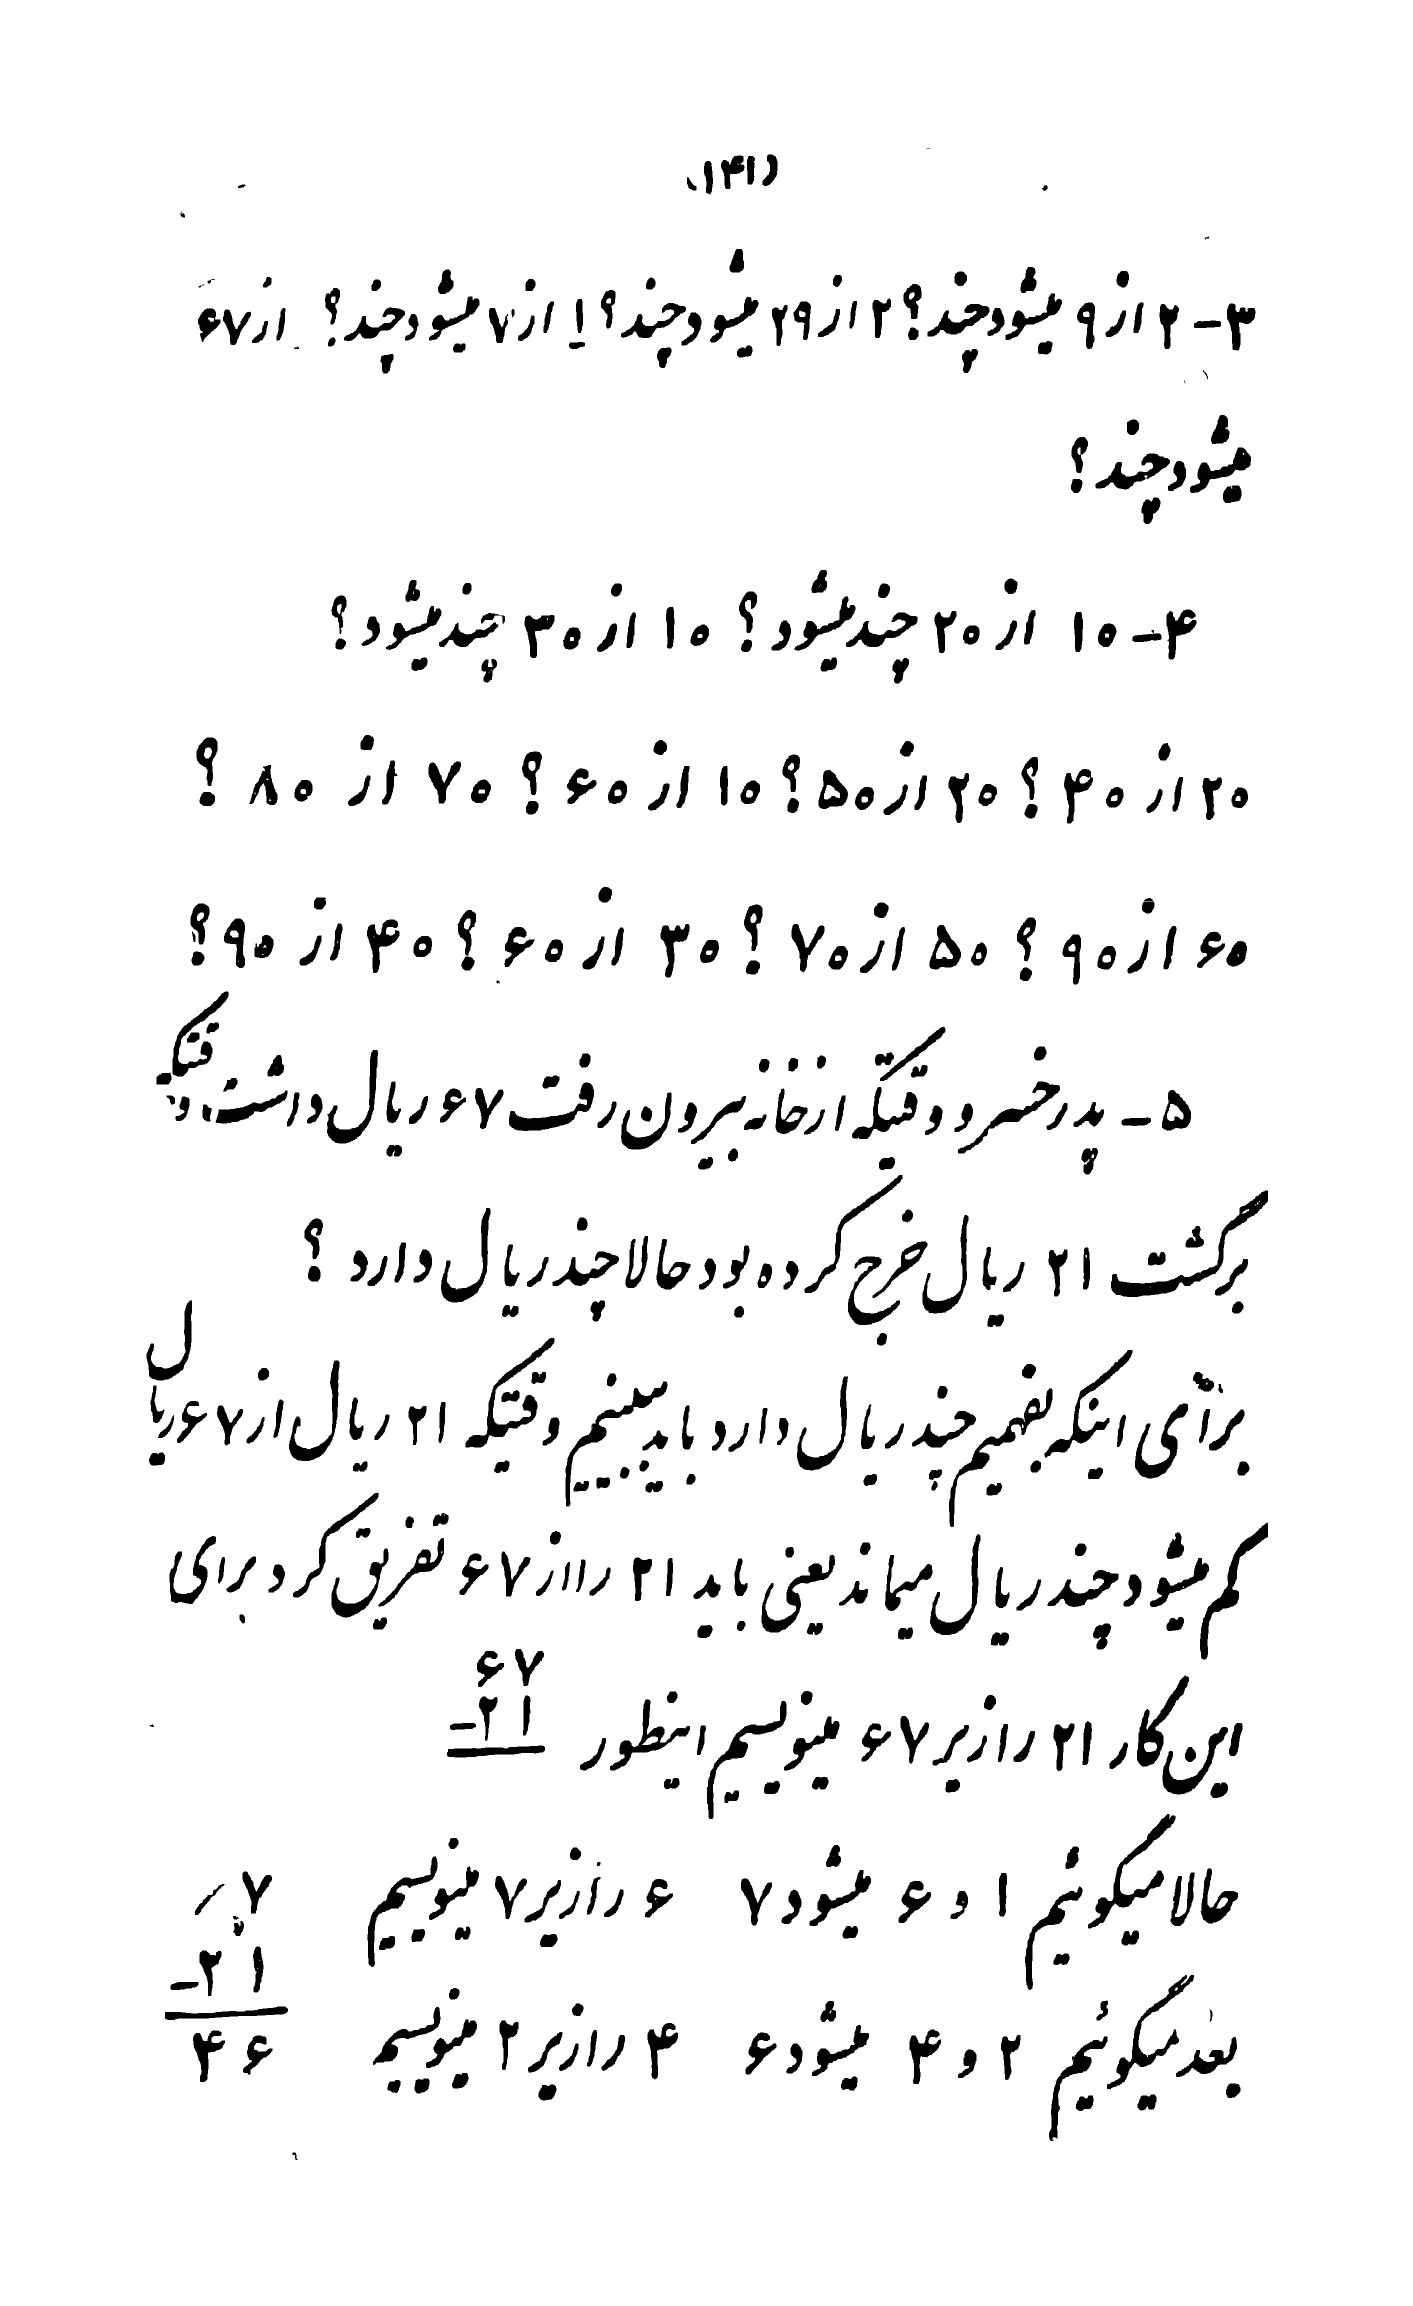 (۱۴۱)
۳- ۲ از ۹ میشود چند؟ ۲ از ۲۹ میشود چند؟ ۱ از ۷ میشود چند؟ از ۶۷
میشود چند؟
۴- ۱۰ از ۲۰ چند میشود؟ ۱۰ از ۳۰ چند میشود؟
۲۰ از ۴۰ ؟ ۲۰ از ۵۰ ؟ ۱۰ از ۶۰ ؟ ۷۰ از ۸۰ ؟
۶۰ از ۹۰ ؟ ۵۰ از ۷۰ ؟ ۳۰ از ۶۰ ؟ ۴۰ از ۹۰ ؟
۵- پدر خسرو وقتیکه از خانه بیرون رفت ۶۷ ریال داشت، وقتیکه
برگشت ۲۱ ریال خرج کرده بود حالا چند ریال دارد ؟
برای اینکه بفهمیم چند ریال دارد باید ببینیم وقتیکه ۲۱ ریال از ۶۷ ریال
کم میشود چند ریال میماند یعنی باید ۲۱ را از ۶۷ تفریق کرد برای
این کار ۲۱ را زیر ۶۷ مینویسیم اینطور
۶۷
۲۱-
حالا میگوئیم ۱ و ۶ میشود ۷ ۶ را زیر ۷ مینویسیم
بعد میگوئیم ۲ و ۴ میشود ۶ ۴ را زیر ۲ مینویسیم
۷
۲۱-
۴۶